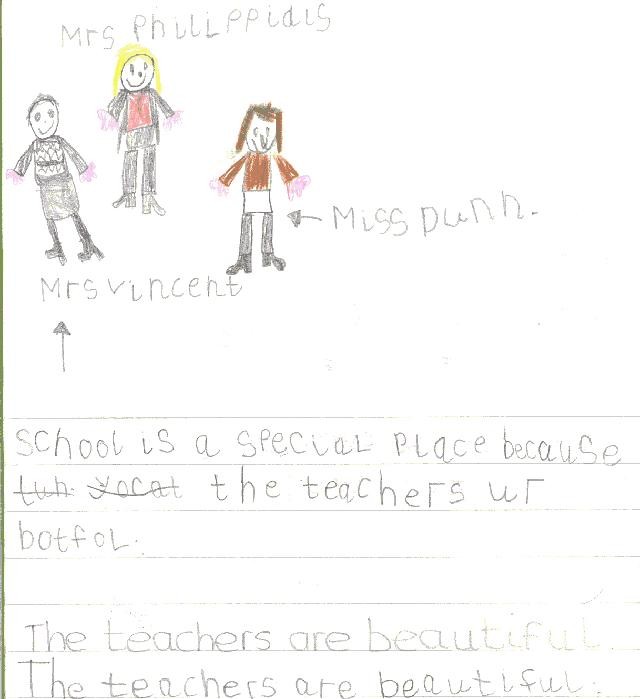 Mrs Philippidis
Miss Dunn.
Mrs Vincent
school is a special place because
the teachers ur
botfol.
The teachers are beautiful.
The teachers are beautiful.